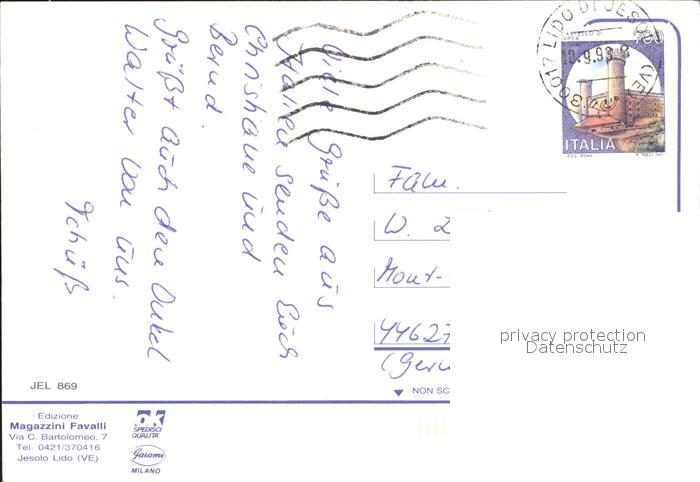 Viele Grüße aus
Italien senden Euch
Christiane und
Bernd.
Grüßt auch den Onkel
Walter von uns.
Tschüß
30017 LIDO DI JESOLO (VE)
CASTELLO DI
IVREA
ITALIA
I.P.Z.S. ROMA
Fam.
W.
Mont-
44627
(Germ
privacy protection
Datenschutz
NON SC
JEL 869
Edizione
Magazzini Favalli
Via C. Bartolomeo, 7
Tel. 0421/370416
Jesolo Lido (VE)
ok
SPEDISCI
QUALITÀ
Garami
MILANO